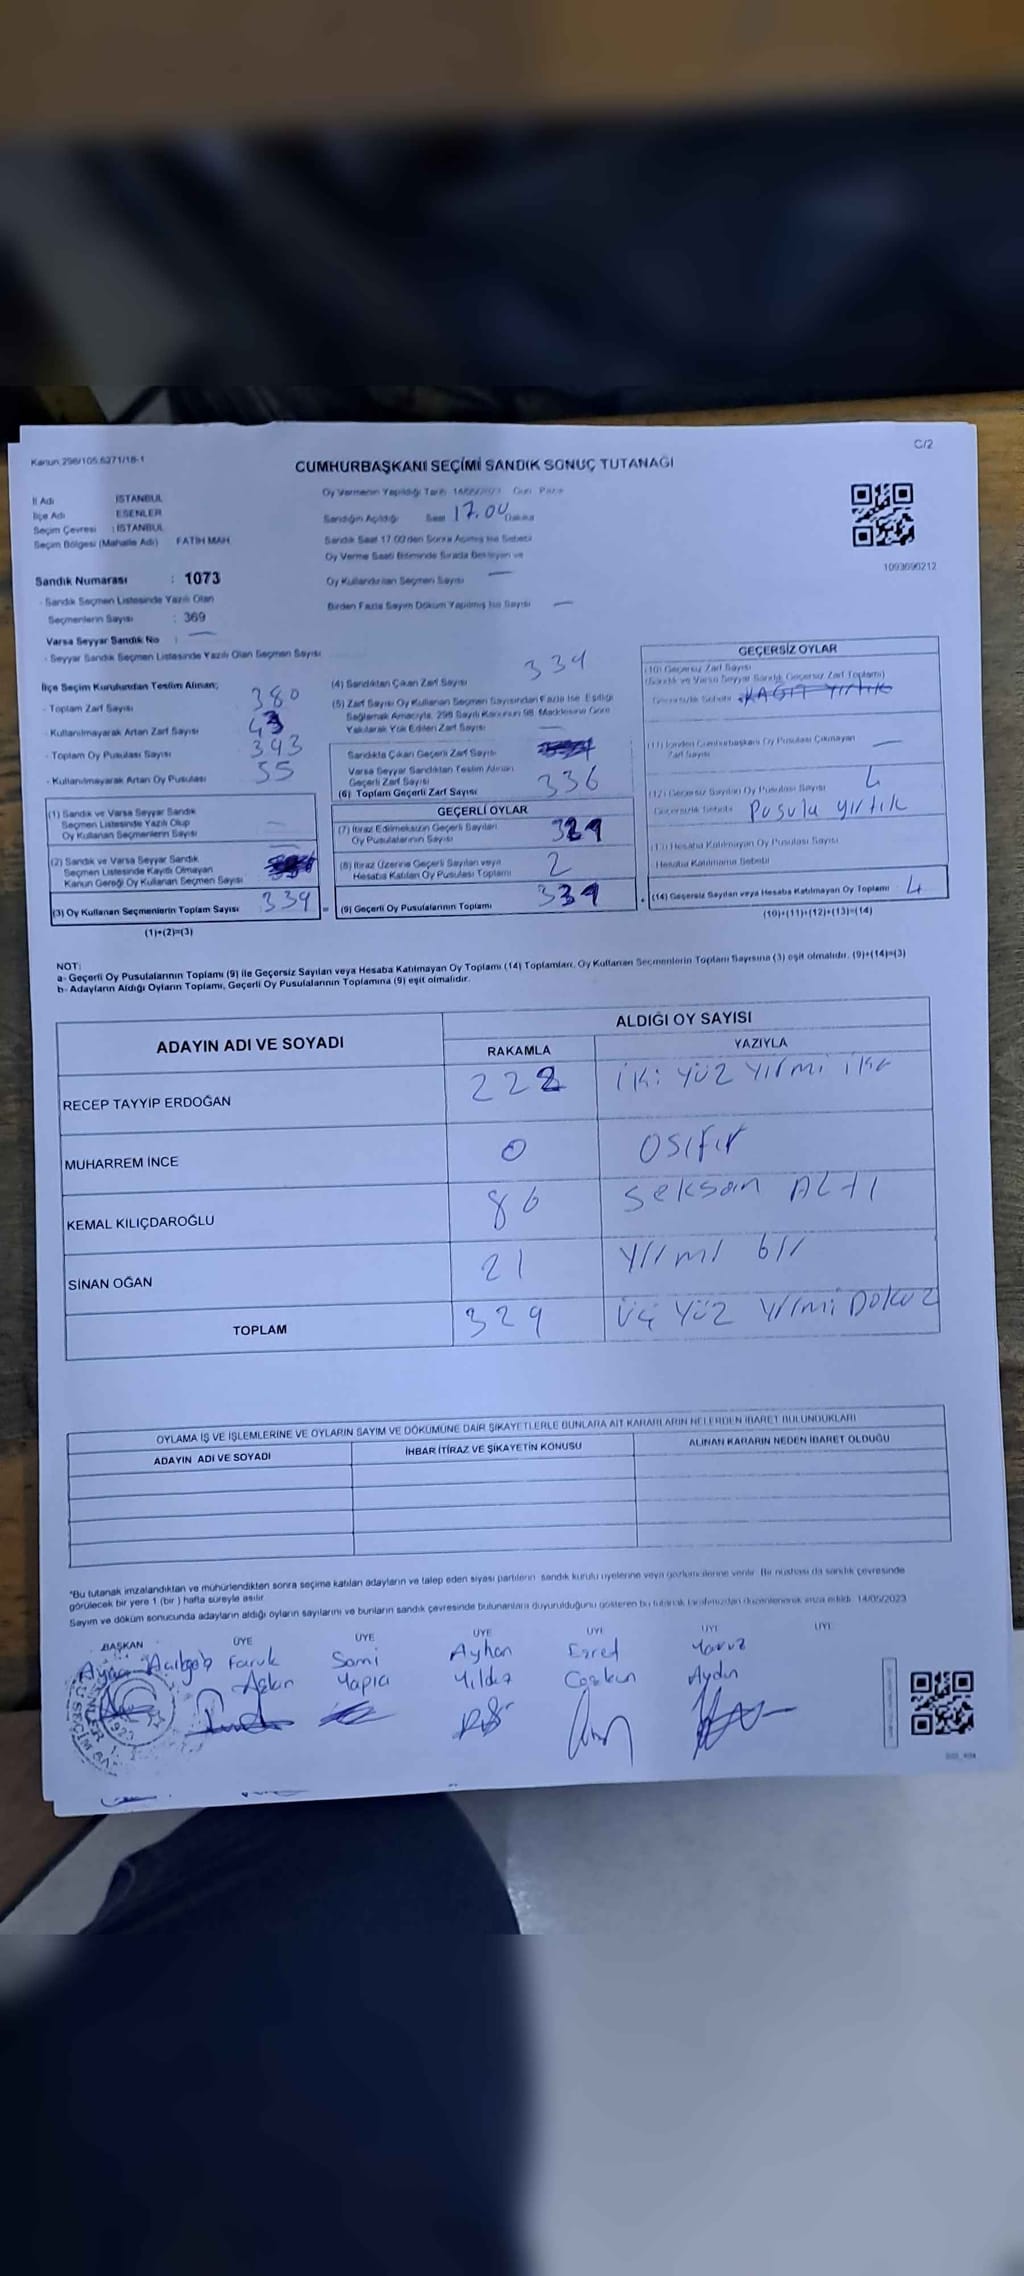 C/2
Kanun 298/105.6271/16-1
CUMHURBAŞKANI SEÇİMİ SANDIK SONUÇ TUTANAĞI
İl Adı İSTANBUL
İlçe Adı ESENLER
Seçim Çevresi : İSTANBUL
Seçim Bölgesi (Mahalle Adı) FATİH MAH.
Oy Vermenin Yapıldığı Tarih 14/05/2023 Gün Pazar
Sandığın Açıldığı Saat 17.00 Dakika
Sandık Saat 17.00'den Sonra Açılmış İse Sebebi
Oy Verme Saati Bitiminde Sırada Bekleyen ve
Oy Kullandırılan Seçmen Sayısı —
Birden Fazla Sayım Döküm Yapılmış İse Sayısı —
1093690212
Sandık Numarası : 1073
- Sandık Seçmen Listesinde Yazılı Olan
Seçmenlerin Sayısı : 369
Varsa Seyyar Sandık No : —
- Seyyar Sandık Seçmen Listesinde Yazılı Olan Seçmen Sayısı :
İlçe Seçim Kurulundan Teslim Alınan;
- Toplam Zarf Sayısı 380
- Kullanılmayarak Artan Zarf Sayısı 43
- Toplam Oy Pusulası Sayısı 393
- Kullanılmayarak Artan Oy Pusulası 55
(1) Sandık ve Varsa Seyyar Sandık
Seçmen Listesinde Yazılı Olup
Oy Kullanan Seçmenlerin Sayısı —
(2) Sandık ve Varsa Seyyar Sandık
Seçmen Listesinde Kayıtlı Olmayan
Kanun Gereği Oy Kullanan Seçmen Sayısı
(3) Oy Kullanan Seçmenlerin Toplam Sayısı 339
(1)+(2)=(3)
(4) Sandıktan Çıkan Zarf Sayısı 339
(5) Zarf Sayısı Oy Kullanan Seçmen Sayısından Fazla İse, Eşitliği
Sağlamak Amacıyla, 298 Sayılı Kanunun 98. Maddesine Göre
Yakılarak Yok Edilen Zarf Sayısı —
Sandıkta Çıkan Geçerli Zarf Sayısı
Varsa Seyyar Sandıktan Teslim Alınan
Geçerli Zarf Sayısı
(6) Toplam Geçerli Zarf Sayısı 336
GEÇERLİ OYLAR
(7) İtiraz Edilmeksizin Geçerli Sayılan
Oy Pusulalarının Sayısı 329
(8) İtiraz Üzerine Geçerli Sayılan veya
Hesaba Katılan Oy Pusulası Toplamı 2
(9) Geçerli Oy Pusulalarının Toplamı 339
GEÇERSİZ OYLAR
(10) Geçersiz Zarf Sayısı
(Sandık ve Varsa Seyyar Sandık Geçersiz Zarf Toplamı)
Geçersizlik Sebebi KAĞIT YIRTIK
(11) İçinden Cumhurbaşkanı Oy Pusulası Çıkmayan
Zarf Sayısı —
(12) Geçersiz Sayılan Oy Pusulası Sayısı 4
Geçersizlik Sebebi Pusula yırtık
(13) Hesaba Katılmayan Oy Pusulası Sayısı
Hesaba Katılmama Sebebi
(14) Geçersiz Sayılan veya Hesaba Katılmayan Oy Toplamı 4
(10)+(11)+(12)+(13)=(14)
NOT:
a- Geçerli Oy Pusulalarının Toplamı (9) ile Geçersiz Sayılan veya Hesaba Katılmayan Oy Toplamı (14) Toplamları, Oy Kullanan Seçmenlerin Toplam Sayısına (3) eşit olmalıdır. (9)+(14)=(3)
b- Adayların Aldığı Oyların Toplamı, Geçerli Oy Pusulalarının Toplamına (9) eşit olmalıdır.
ADAYIN ADI VE SOYADI
ALDIĞI OY SAYISI
RAKAMLA YAZIYLA
RECEP TAYYİP ERDOĞAN 222 iki yüz yirmi iki
MUHARREM İNCE 0 0sıfır
KEMAL KILIÇDAROĞLU 86 seksan ALtı
SİNAN OĞAN 21 yirmi bir
TOPLAM 329 üç yüz yirmi Dokuz
OYLAMA İŞ VE İŞLEMLERİNE VE OYLARIN SAYIM VE DÖKÜMÜNE DAİR ŞİKAYETLERLE BUNLARA AİT KARARLARIN NELERDEN İBARET BULUNDUKLARI
ADAYIN ADI VE SOYADI İHBAR İTİRAZ VE ŞİKAYETİN KONUSU ALINAN KARARIN NEDEN İBARET OLDUĞU
*Bu tutanak imzalandıktan ve mühürlendikten sonra seçime katılan adayların ve talep eden siyasi partilerin sandık kurulu üyelerine veya gözlemcilerine verilir. Bir nüshası da sandık çevresinde
görülecek bir yere 1 (bir ) hafta süreyle asılır.
Sayım ve döküm sonucunda adayların aldığı oyların sayılarını ve bunların sandık çevresinde bulunanlara duyurulduğunu gösteren bu tutanak tarafımızdan düzenlenerek imza edildi. 14/05/2023
BAŞKAN ÜYE ÜYE ÜYE ÜYE ÜYE ÜYE
Faruk Sami Ayhan Esred Yavuz
Aşkın Yapıcı Yıldız Coşkun Aydın